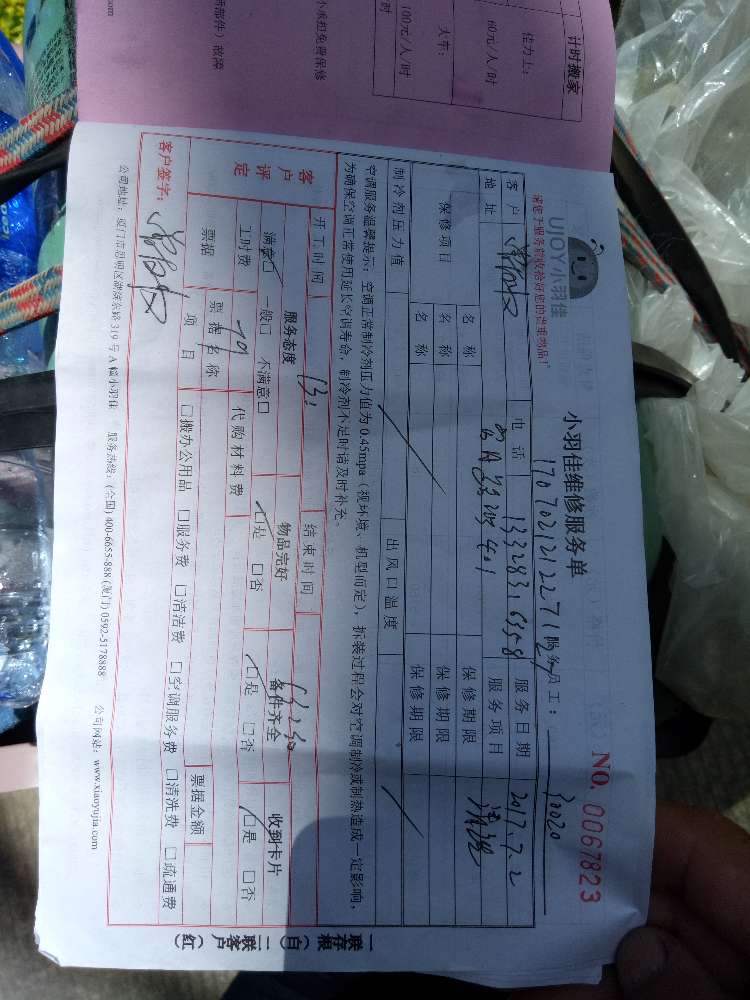 计时搬家
佐力士:
60元/人/时
大车:
100元/人/时
小承担免费保修
两部件) 故障
UJOY小羽佳
请您于服务前收恰好您的贵重物品!
小羽佳维修服务单
NO. 0067823
17070212122271 服务员工: 30020
客户
电话 13328316358
服务日期 2017.7.2
地址
401
服务项目 清洗
保修项目
名称
保修期限
名称
保修期限
名称
保修期限
制冷剂压力值
出风口温度
空调服务温馨提示: 空调正常制冷剂压力值为0.45mpa (视环境、机型而定), 拆装过程会对空调制冷或制热造成一定影响,
为确保空调正常使用延长空调寿命, 制冷剂不足时请及时补充。
开工时间 13:
结束时间
客户评定
服务态度
物品完好
备件齐全
收到卡片
满意□ 一般□ 不满意□
□是 □否
□是 □否
□是 □否
工时费
代购材料费
票据
票据名称
票据金额
项目
□搬办公用品 □服务费 □清洁费 □空调服务费 □清洗费 □疏通费
客户签字:
公司地址: 厦门市思明区湖滨东路319号A幢小羽佳 服务热线: (全国) 400-6655-888 (厦门) 0592-5178888 公司网站: www.xiaoyujia.com
一联存根(白) 二联客户(红)